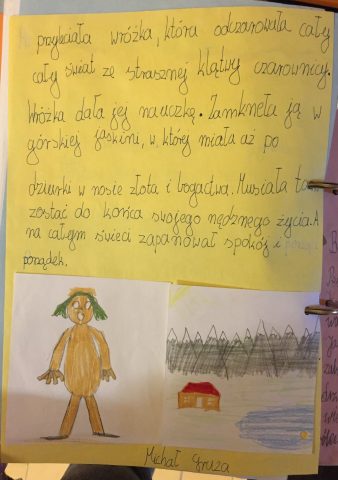 przyleciała wróżka, która odczarowała cały
cały świat ze strasznej klątwy czarownicy.
Wróżka dała jej nauczkę. Zamknęła ją w
górskiej jaskini, w, której miała aż po
dziurki w nosie złota i bogactwa. Musiała tam
zostać do końca swojego nędznego życia. A
na całym świeci zapanował spokój i
porządek.
Michał Gruza